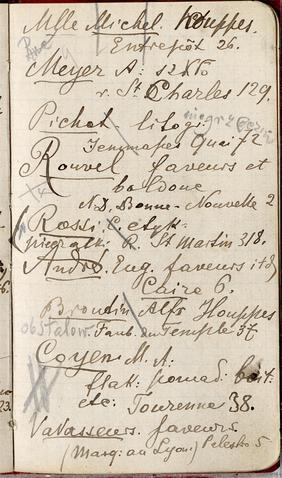 Mlle Michel. Houppes.
Entrepôt 26.
Meyer A:
r. St Charles 129.
Pichot litogr.
Jemmapes Quai 72
Rouvel faveurs et
N.D. Bonne-Nouvelle 2
Rossi C. etyk.
R. St Martin 318.
André. Eug. faveurs itd)
Caire 6.
Broutin Alfr Houppes
obstalow. Faub. du Temple 37
Coyen M. A:
flak: pomad: boit:
etc: Tourenne 38.
Vavasseurs. faveurs.
(Marq: au Lyon) Pelesko 5